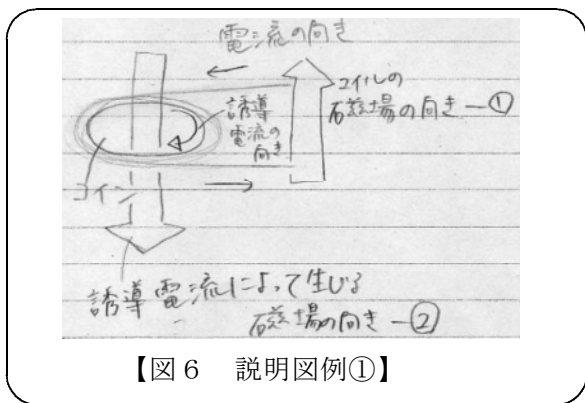 電流の向き
コイルの
磁場の向き－①
誘導
電流の
向き
コイン
誘導電流によって生じる
磁場の向き－②
【図６　説明図例①】